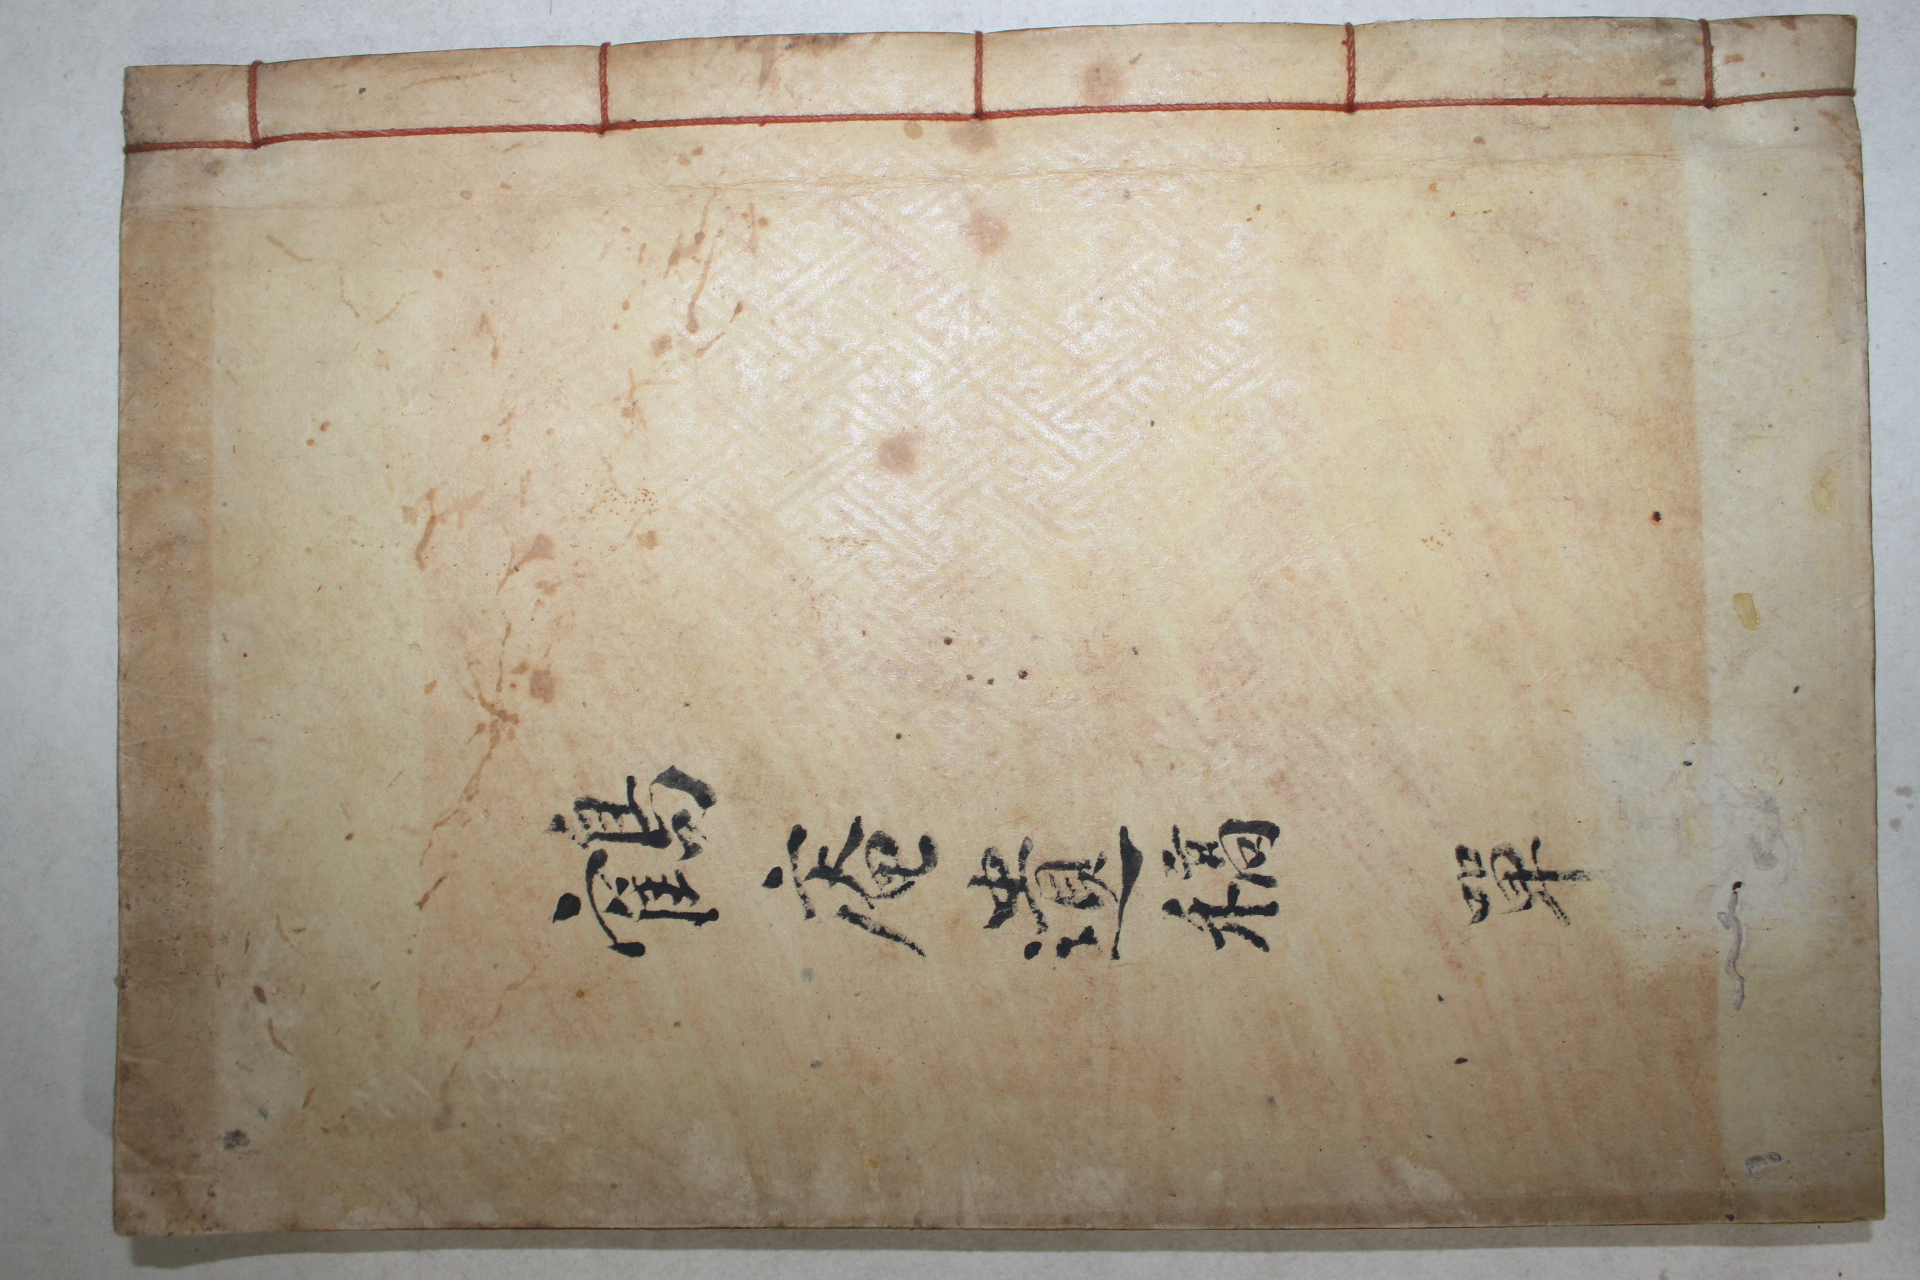 鶴庵遺稿 單